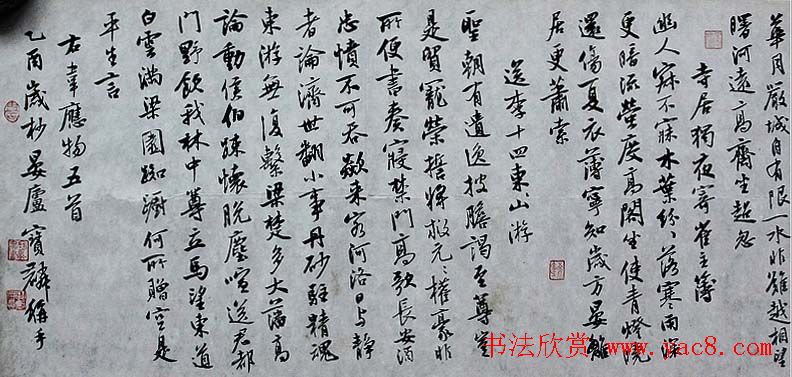 華月嚴城自有限一水非難越相望
曙河遠高齋坐超忽
寺居獨夜寄崔主簿
幽人寂不寐木葉紛〻落寒雨深
更暗流螢度高閣坐使青燈曉
還傷夏衣薄寧知歲方晏離
居更蕭索
送李十四東山游
聖朝有遺逸披膽謁至尊豈
是貿寵榮誓將救元〻權豪非
所便書奏寢禁門高歌長安酒
忠憤不可吞欻來客河洛日与靜
者論濟世翻小事丹砂駐精魂
東游無復繫梁楚多大藩高
論動侯伯疎懷脫塵喧送君都
門野飲我林中尊立馬望東道
白雲滿梁園踟躕何所贈空是
平生言
右韋應物五首
乙酉歲杪晏廬寶麟
书法欣赏 www.yac8.com